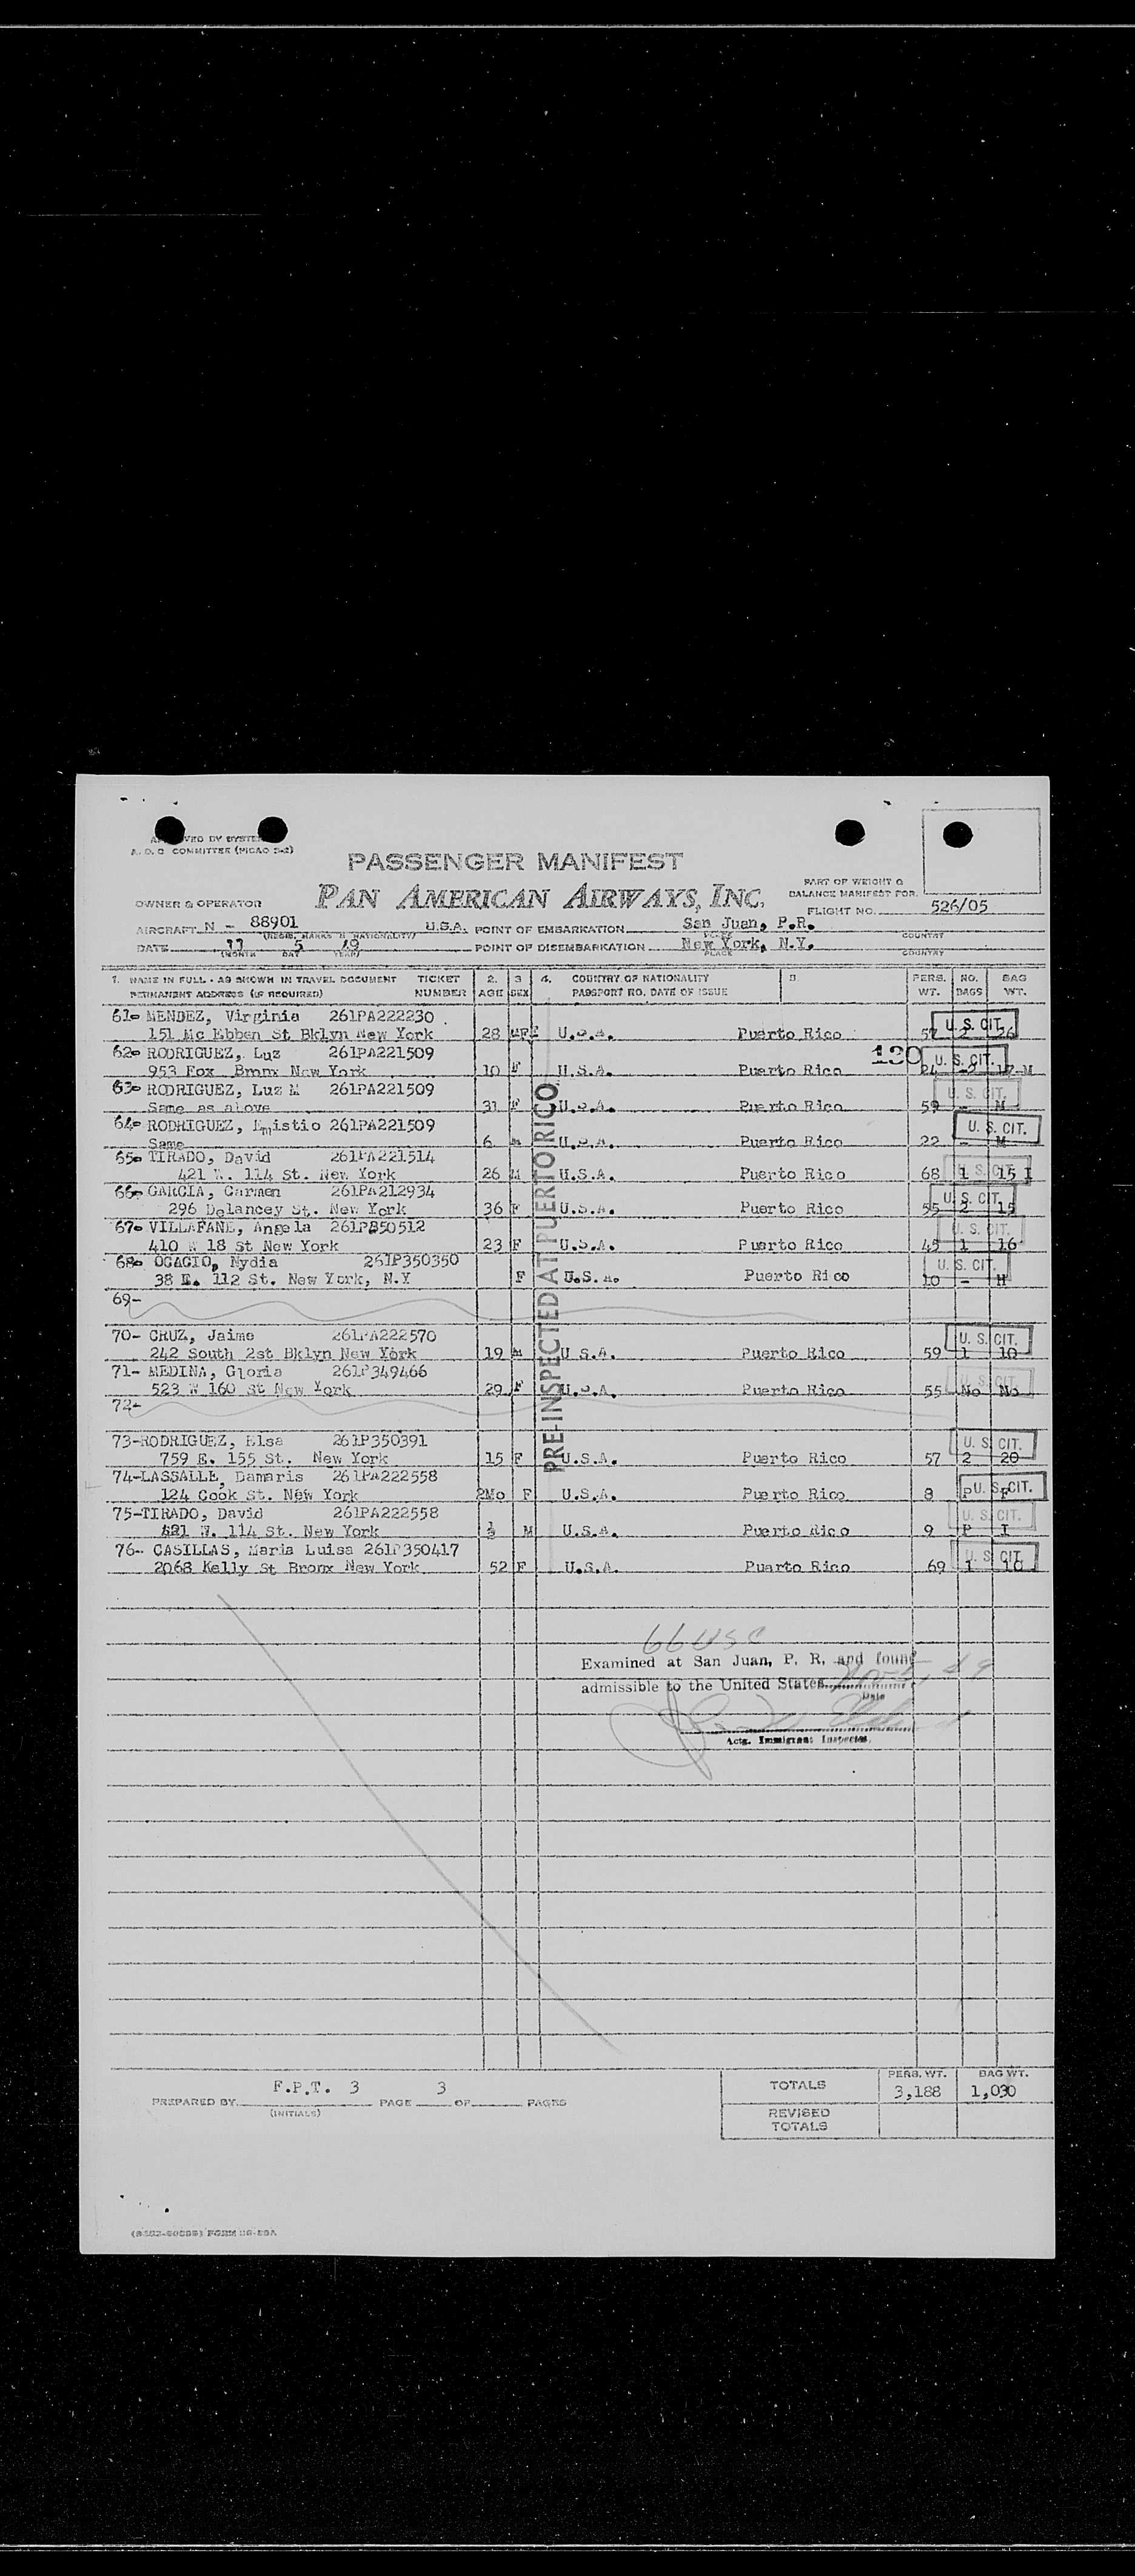 PASSENGER MANIFEST
PAN AMERICAN AIRWAYS, INC.
A. O. C. COMMITTEE
OWNER & OPERATOR
PART OF WEIGHT &
BALANCE MANIFEST FOR
FLIGHT NO. 526/05
AIRCRAFT N - 88901 U.S.A. POINT OF EMBARKATION San Juan, P.R.
(REGIS. MARKS & NATIONALITY) PLACE COUNTRY
DATE 11 5 49 POINT OF DISEMBARKATION New York, N.Y.
(MONTH DAY YEAR) PLACE COUNTRY
1. NAME IN FULL - AS SHOWN IN TRAVEL DOCUMENT TICKET 2. 3 4. COUNTRY OF NATIONALITY PERS. NO. BAG
PERMANENT ADDRESS (IF REQUIRED) NUMBER AGE SEX PASSPORT NO. DATE OF ISSUE WT. BAGS WT.
61- MENDEZ, Virginia 261PA222230
151 Mc Ebben St Bklyn New York 28 F U.S.A. Puerto Rico 57 2 26 U. S. CIT.
62- RODRIGUEZ, Luz 261PA221509 130
953 Fox Bronx New York 10 F U.S.A. Puerto Rico 24 U. S. CIT.
63- RODRIGUEZ, Luz M 261PA221509
Same as above 31 F U.S.A. Puerto Rico 59 - M U. S. CIT.
64- RODRIGUEZ, Emistio 261PA221509
Same 6 M U.S.A. Puerto Rico 22 - M U. S. CIT.
65- TIRADO, David 261PA221514
421 W. 114 St. New York 26 M U.S.A. Puerto Rico 68 1 15 I U. S. CIT.
66- GARCIA, Carmen 261PA212934
296 Delancey St. New York 36 F U.S.A. Puerto Rico 55 2 15 U. S. CIT.
67- VILLAFANE, Angela 261PB50512
410 W 18 St New York 23 F U.S.A. Puerto Rico 45 1 16 U. S. CIT.
68- OCACIO, Nydia 261P350350
38 E. 112 St. New York, N.Y F U.S.A. Puerto Rico 10 - M U. S. CIT.
69-
70- CRUZ, Jaime 261PA222570
242 South 2st Bklyn New York 19 M U.S.A. Puerto Rico 59 1 10 U. S. CIT.
71- MEDINA, Gloria 261P349466
523 W 160 St New York 29 F U.S.A. Puerto Rico 55 No No U. S. CIT.
72-
73-RODRIGUEZ, Elsa 261P350391
759 E. 155 St. New York 15 F U.S.A. Puerto Rico 57 2 20 U. S. CIT.
74-LASSALLE, Damaris 261PA222558
124 Cook St. New York 2Mo F U.S.A. Puerto Rico 8 P F U. S. CIT.
75-TIRADO, David 261PA222558
421 W. 114 St. New York M U.S.A. Puerto Rico 9 P I U. S. CIT.
76- CASILLAS, Maria Luisa 261P350417
2068 Kelly St Bronx New York 52 F U.S.A. Puerto Rico 69 1 10 U. S. CIT.
PRE-INSPECTED AT PUERTO RICO
66 USC
Examined at San Juan, P. R. and found
admissible to the United States
Date
Actg. Immigrant Inspector.
TOTALS PERS. WT. 3,188 BAG WT. 1,030
REVISED
TOTALS
PREPARED BY F.P.T. 3 PAGE 3 OF PAGES
(INITIALS)